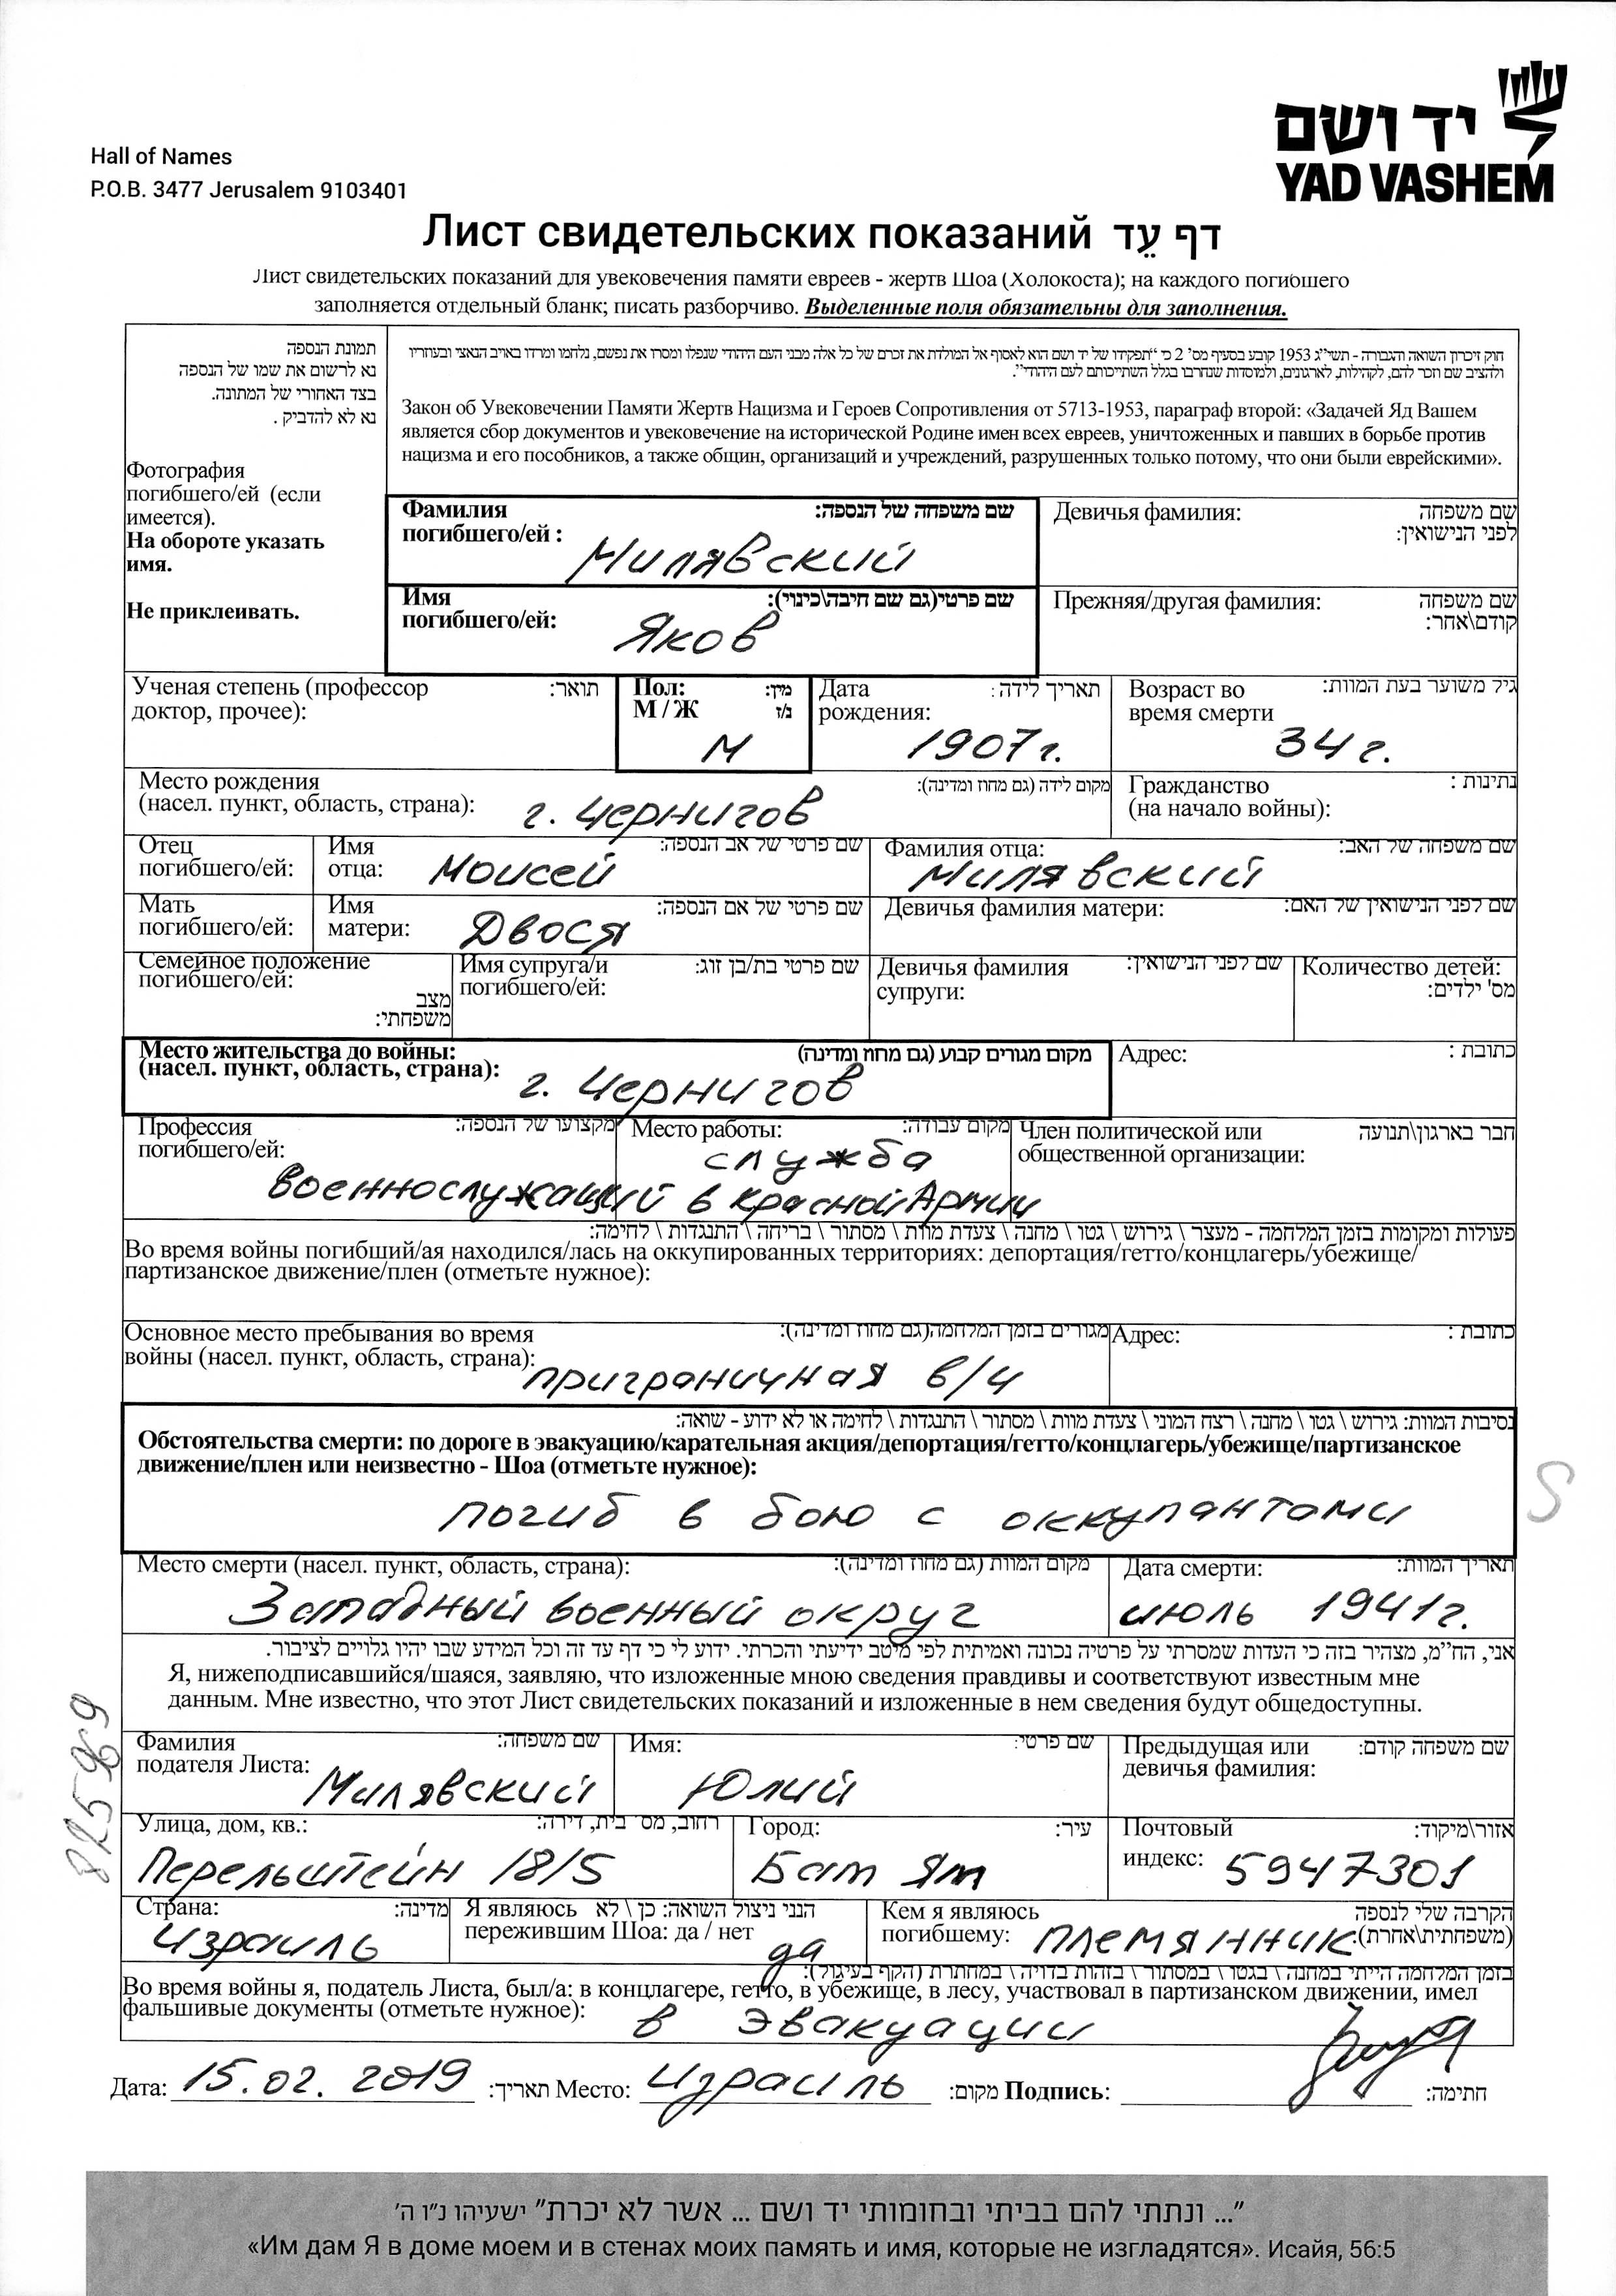 יד ושם
YAD VASHEM
Hall of Names
P.O.B. 3477 Jerusalem 9103401
Лист свидетельских показаний דף עֵד
Лист свидетельских показаний для увековечения памяти евреев - жертв Шоа (Холокоста); на каждого погибшего
заполняется отдельный бланк; писать разборчиво. Выделенные поля обязательны для заполнения.
תמונת הנספה
נא לרשום את שמו של הנספה
בצד האחורי של המתונה.
נא לא להדביק .
Фотография
погибшего/ей (если
имеется).
На обороте указать
имя.
Не приклеивать.
חוק זיכרון השואה והגבורה - תשי"ג 1953 קובע בסעיף מס' 2 כי "תפקידו של יד ושם הוא לאסוף אל המולדת את זכרם של כל אלה מבני העם היהודי שנפלו ומסרו את נפשם, נלחמו ומרדו באויב הנאצי ובעוזריו
ולהציב שם וזכר להם, לקהילות, לארגונים, ולמוסדות שנחרבו בגלל השתייכותם לעם היהודי".
Закон об Увековечении Памяти Жертв Нацизма и Героев Сопротивления от 5713-1953, параграф второй: «Задачей Яд Вашем
является сбор документов и увековечение на исторической Родине имен всех евреев, уничтоженных и павших в борьбе против
нацизма и его пособников, а также общин, организаций и учреждений, разрушенных только потому, что они были еврейскими».
Фамилия שם משפחה של הנספה:
погибшего/ей :
Милявский
Девичья фамилия: שם משפחה
לפני הנישואין:
Имя שם פרטי(גם שם חיבה\כינוי):
погибшего/ей:
Яков
Прежняя/другая фамилия: שם משפחה
קודם\אחר:
Ученая степень (профессор תואר:
доктор, прочее):
Пол: מין:
М / Ж ז/נ
М
Дата תאריך לידה:
рождения:
1907 г.
Возраст во גיל משוער בעת המוות:
время смерти
34 г.
Место рождения מקום לידה (גם מחוז ומדינה):
(насел. пункт, область, страна): г. Чернигов
Гражданство נתינות :
(на начало войны):
Отец
погибшего/ей:
Имя שם פרטי של אב הנספה:
отца: Моисей
Фамилия отца: שם משפחה של האב:
Милявский
Мать
погибшего/ей:
Имя שם פרטי של אם הנספה:
матери: Двося
Девичья фамилия матери: שם לפני הנישואין של האם:
Семейное положение
погибшего/ей:
מצב
משפחתי:
Имя супруга/и שם פרטי בת/בן זוג:
погибшего/ей:
Девичья фамилия שם לפני הנישואין:
супруги:
Количество детей:
מס' ילדים:
Место жительства до войны: מקום מגורים קבוע (גם מחוז ומדינה)
(насел. пункт, область, страна): г. Чернигов
Адрес: כתובת :
Профессия מקצועו של הנספה:
погибшего/ей:
Место работы: מקום עבודה:
служба
военнослужащий в Красной Армии
Член политической или חבר בארגון\תנועה
общественной организации:
פעולות ומקומות בזמן המלחמה - מעצר \ גירוש \ גטו \ מחנה \ צעדת מוות \ מסתור \ בריחה \ התנגדות \ לחימה:
Во время войны погибший/ая находился/лась на оккупированных территориях: депортация/гетто/концлагерь/убежище/
партизанское движение/плен (отметьте нужное):
Основное место пребывания во время מגורים בזמן המלחמה(גם מחוז ומדינה):
войны (насел. пункт, область, страна): приграничная в/ч
Адрес: כתובת :
נסיבות המוות: גירוש \ גטו \ מחנה \ רצח המוני \ צעדת מוות \ מסתור \ התנגדות \ לחימה או לא ידוע - שואה:
Обстоятельства смерти: по дороге в эвакуацию/карательная акция/депортация/гетто/концлагерь/убежище/партизанское
движение/плен или неизвестно - Шоа (отметьте нужное):
погиб в бою с оккупантами
S
Место смерти (насел. пункт, область, страна): מקום המוות (גם מחוז ומדינה):
Западный военный округ
Дата смерти: תאריך המוות:
июль 1941 г.
אני, הח"מ, מצהיר בזה כי העדות שמסרתי על פרטיה נכונה ואמיתית לפי מיטב ידיעתי והכרתי. ידוע לי כי דף עד זה וכל המידע שבו יהיו גלויים לציבור.
Я, нижеподписавшийся/шаяся, заявляю, что изложенные мною сведения правдивы и соответствуют известным мне
данным. Мне известно, что этот Лист свидетельских показаний и изложенные в нем сведения будут общедоступны.
Фамилия שם משפחה:
подателя Листа:
Милявский
Имя: שם פרטי:
Юлий
Предыдущая или שם משפחה קודם:
девичья фамилия:
Улица, дом, кв.: רחוב, מס' בית, דירה:
Перельштейн 18/5
Город: עיר:
Бат Ям
Почтовый אזור\מיקוד:
индекс: 5947301
Страна: מדינה:
Израиль
Я являюсь הנני ניצול השואה: כן \ לא
пережившим Шоа: да / нет
да
Кем я являюсь הקרבה שלי לנספה
погибшему: племянник (משפחתית\אחרת):
בזמן המלחמה הייתי במחנה \ בגטו \ במסתור \ בזהות בדויה \ במחתרת (הקף בעיגול):
Во время войны я, податель Листа, был/а: в концлагере, гетто, в убежище, в лесу, участвовал в партизанском движении, имел
фальшивые документы (отметьте нужное): в эвакуации
Дата: 15.02.2019 תאריך: Место: Израиль מקום: Подпись: חתימה:
"... ונתתי להם בביתי ובחומותי יד ושם ... אשר לא יכרת" ישעיהו נ"ו ה'
«Им дам Я в доме моем и в стенах моих память и имя, которые не изгладятся». Исайя, 56:5